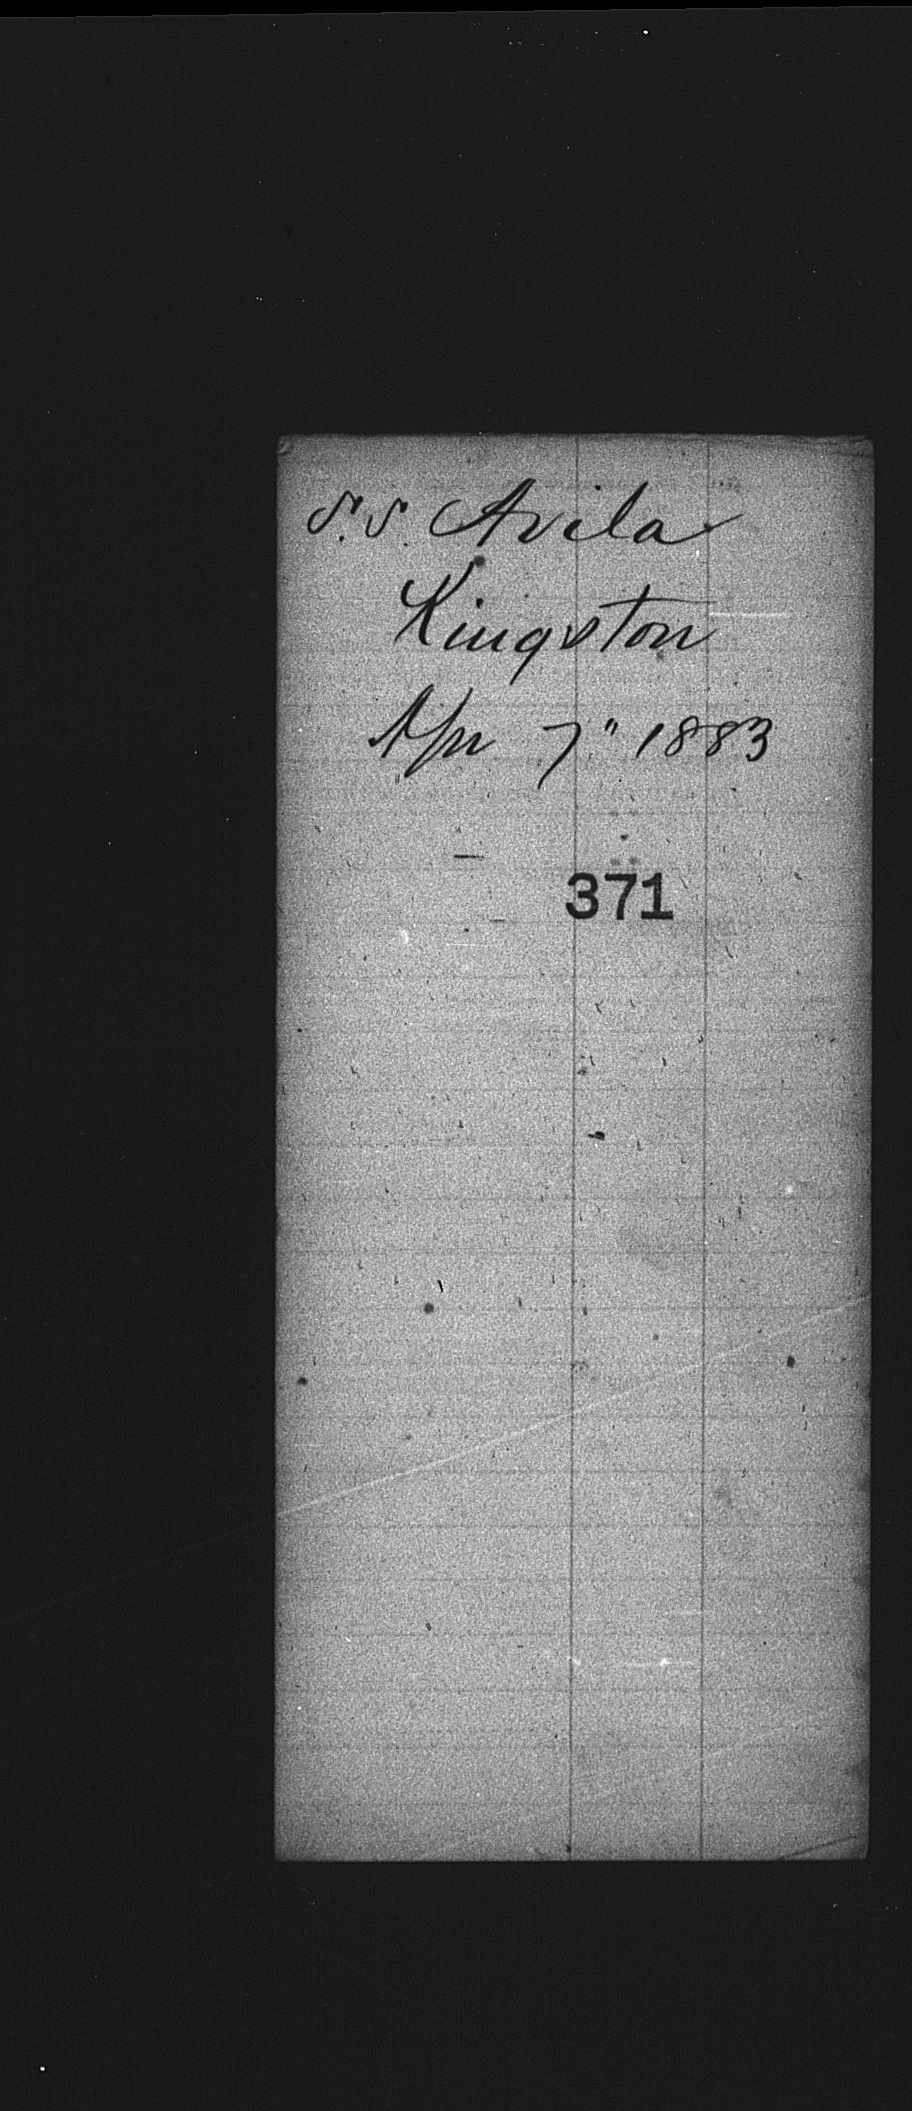 S.S. Avila
Kingston
Apr 7" 1883
371